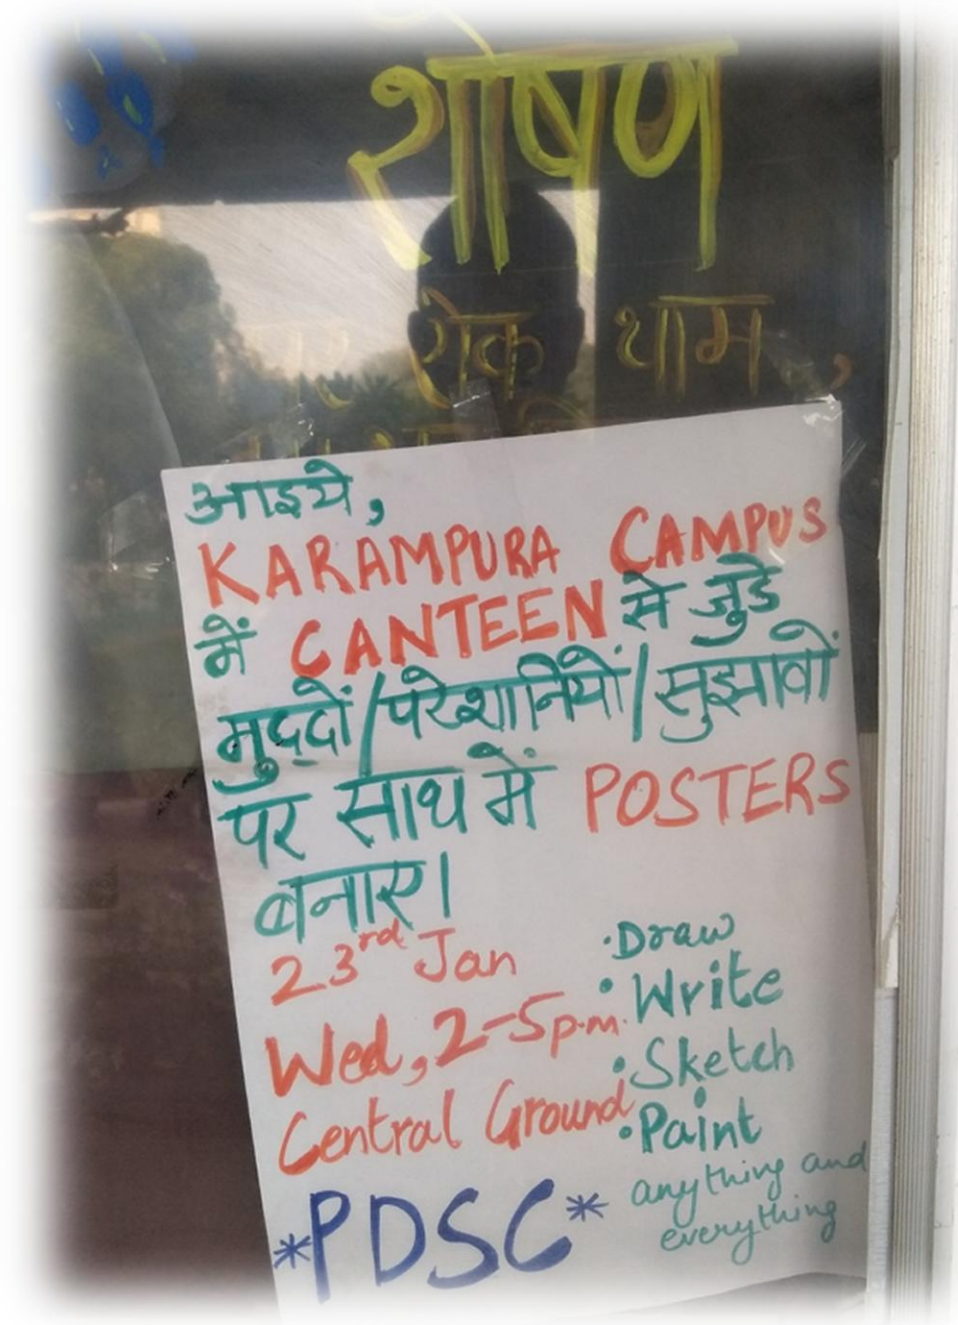 शोषण
रोक थाम,
आइये,
KARAMPURA CAMPUS
में CANTEEN से जुडे
मुद्दों/परेशानियों/सुझावों
पर साथ में POSTERS
बनाए।
23rd Jan
Wed, 2-5 p.m.
Central Ground
*PDSC*
·Draw
·Write
·Sketch
·Paint
anything and
everything